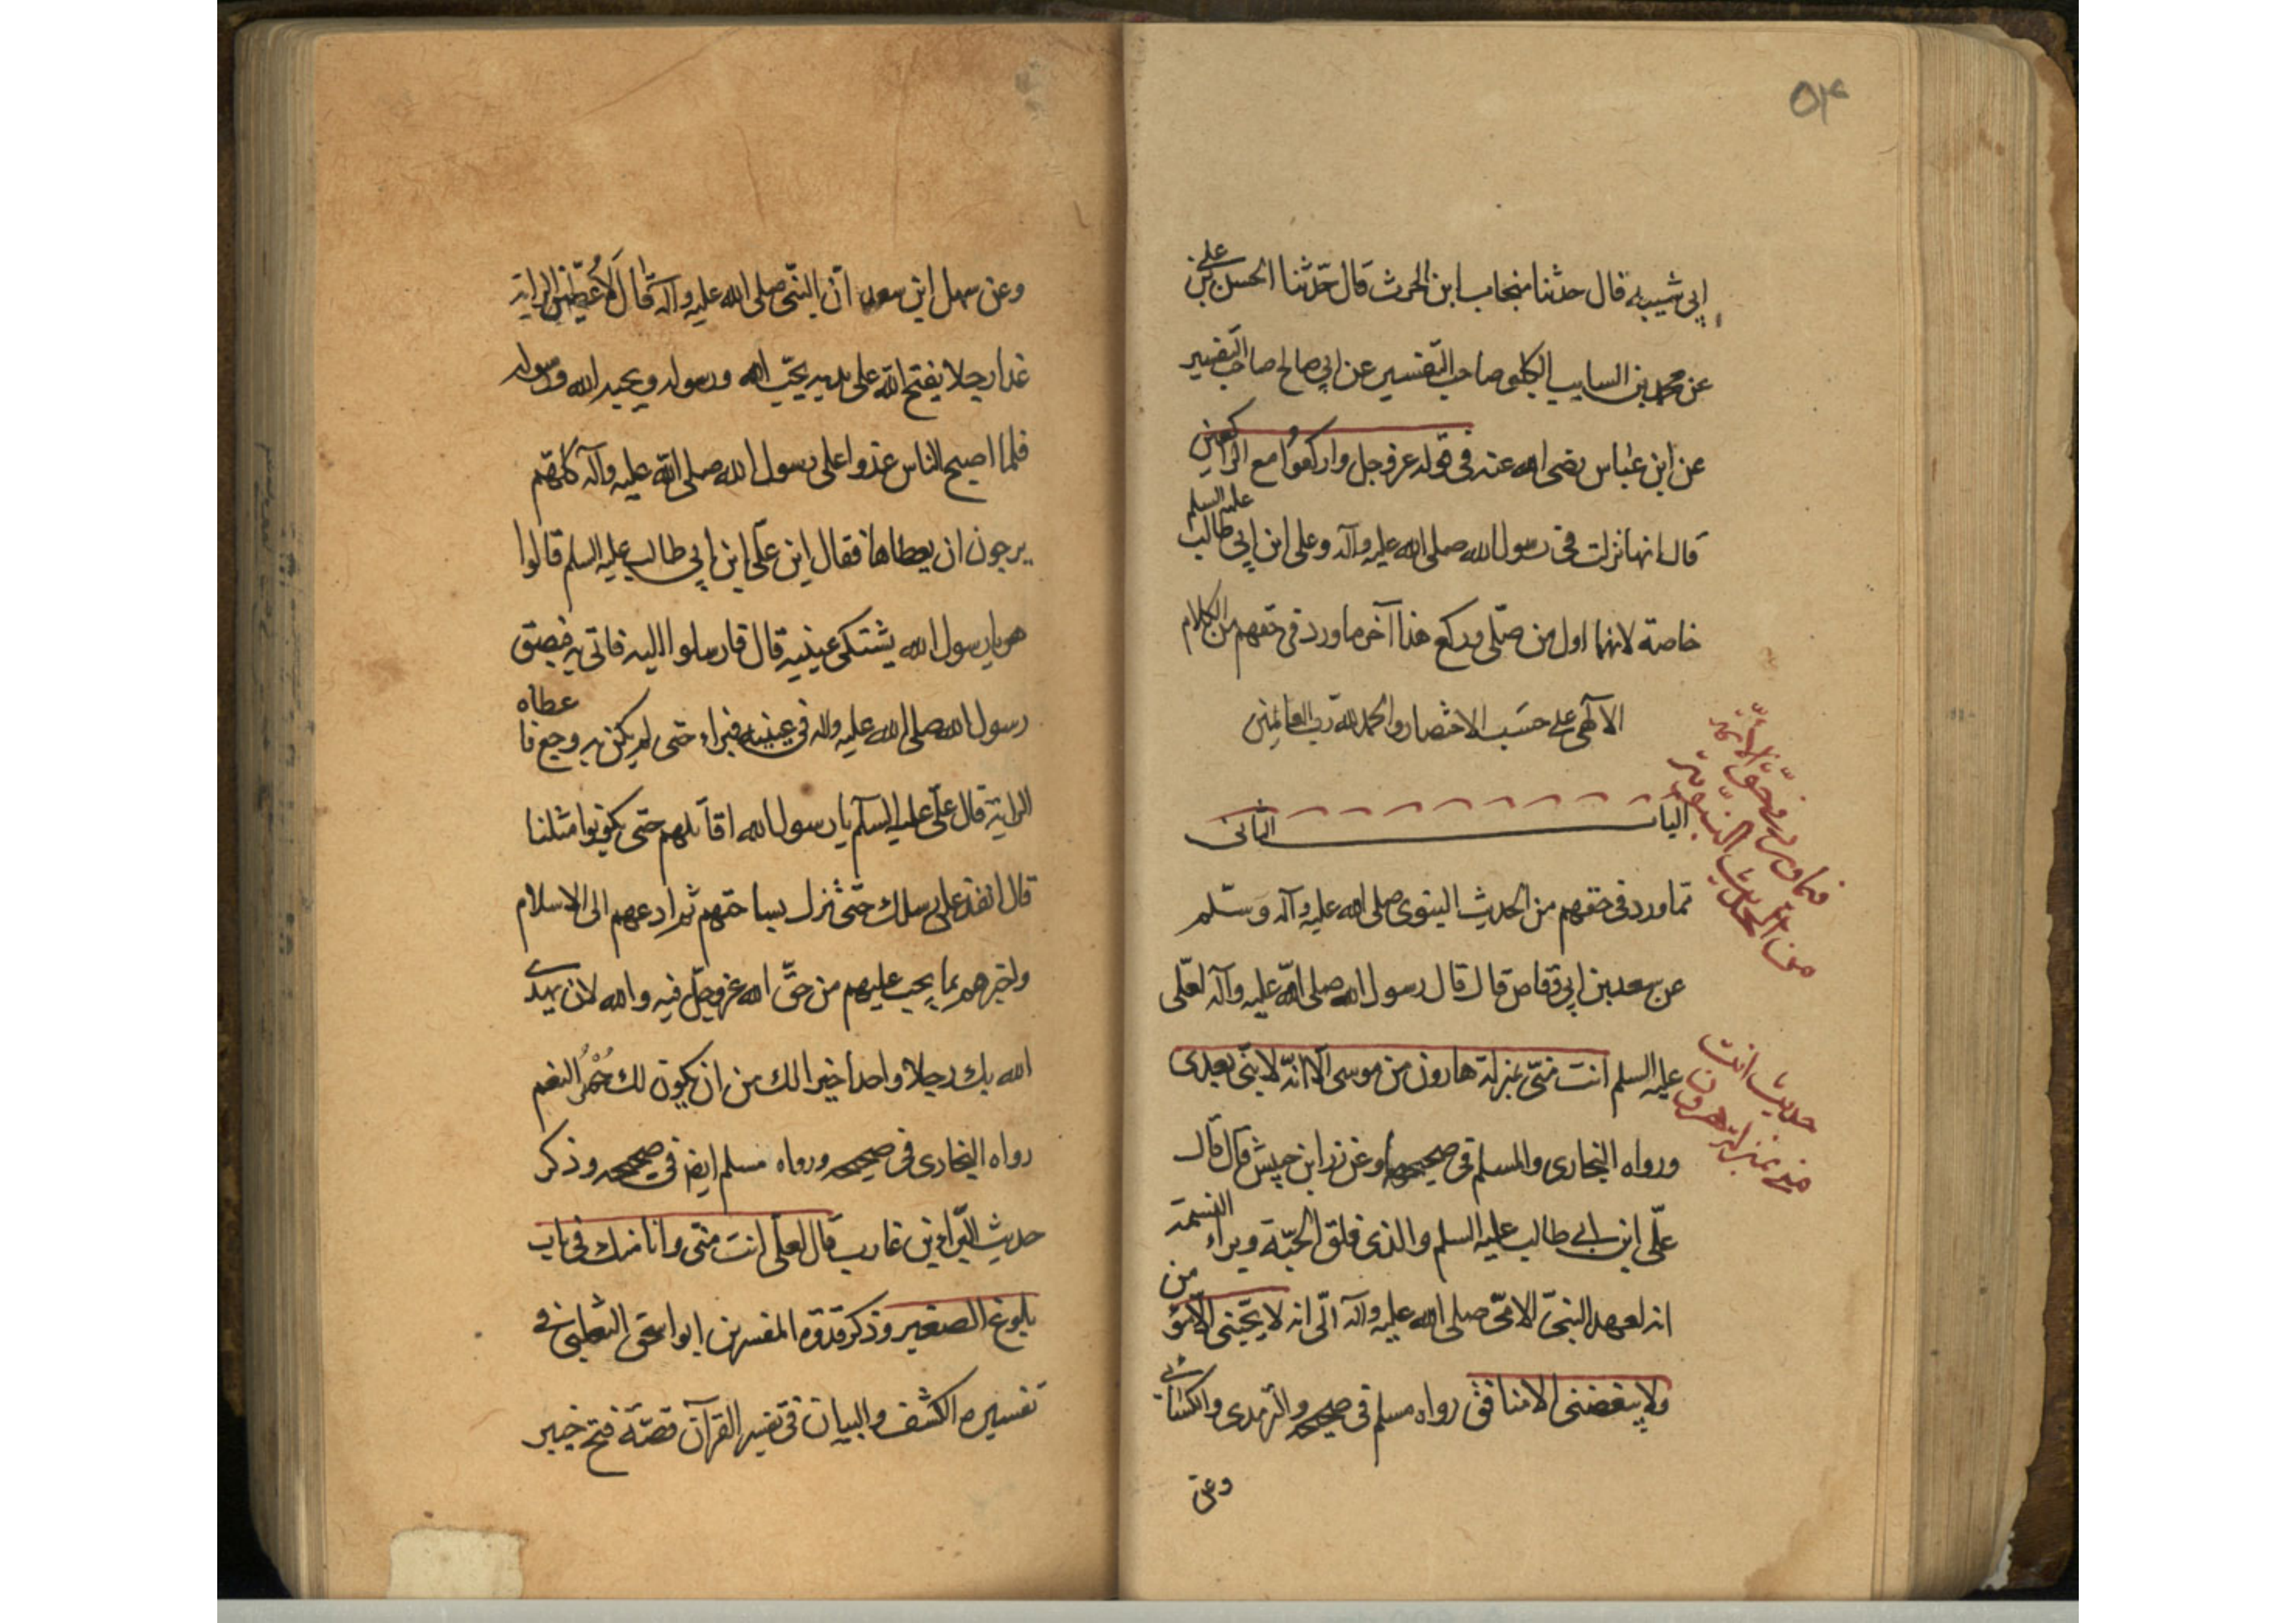 ٥٣
ابي شيبه قال حدثنا منجاب ابن الحرث قال حدّثنا الحسن بن علي
عن محمد بن السايب الكلبي صاحب التفسير عن ابي صالح صاحب التفسير
عن ابن عباس رضى الله عنه فى قوله عز و جل واركعوا مع الراكعين
قال انها نزلت فى رسول الله صلى الله عليه وآله وعلى ابن ابي طالب عليه السلم
خاصة لانهما اول من صلّى وركع هذا آخر ما ورد فى حقهم من الكلام
الآلهى على حسَب الاختصار والحمد لله رب العالمين
الباب الثانى
فيما ورد فى حقّ الائمّة
من الحديث النبوية
مما ورد فى حقهم من الحديث النبوى صلى الله عليه وآله وسلّم
عن سعد بن ابي وقاص قال قال رسول الله صلى الله عليه وآله لعلى
عليه السلم انت منّى بمنزلة هارون من موسى الّا انّه لا نبى بعدى
حديث انت
منى بمنزلة هرون
ورواه البخارى والمسلم فى صحيحهما وعن زر ابن حبيش قال قال
علّى ابن ابي طالب عليه السلم والذى فلق الحبّة وبراء النسمة
انه لعهد النبىّ الامىّ صلى الله عليه وآله الّى انه لا يحبّنى الّا مؤمن
ولا يبغضنى الا منافق رواه مسلم فى صحيحه والترمدى والكسائى
وعن
وعن سهل ابن سعد انّ النبّى صلى الله عليه وآله قال لَاُعطيّن الراية
غدا رجلا يفتح الله على يديه يحبّ الله ورسوله ويحبه الله ورسوله
فلما اصبح الناس غدوا على رسول الله صلى الله عليه وآله كلهم
يرجون ان يعطاها فقال اين علّى ابن ابي طالب عليه السلم قالوا
هو يا رسول الله يشتكى عينيه قال فارسلوا اليه فاتى به فبصق
رسول الله صلى الله عليه واله فى عينيه فبراء حتى لم يكن به وجع فاعطاه
الراية قال علّى عليه السلآم يا رسول الله اقاتلهم حتى يكونوا مثلنا
قال انفذ على رسلك حتّى تنزل بساحتهم ثم ادعهم الى الاسلام
واخبرهم بما يجب عليهم من حقّ الله عز وجلّ فيه والله لان يهدى
الله بك رجلا واحدا خير الك من ان يكون لك حُمْرُ النعم
رواه البخارى فى صحيحه ورواه مسلم ايضا فى صحيحه وذكر
حديث البّراء بن عازب قال لعلّى انت منّى وانا منك فى باب
بلوغ الصغير وذكر قدوة المفسرين ابو اسحق الثعلبى فى
تفسيره الكشف والبيان فى تفسير القرآن قصّة فتح خيبر